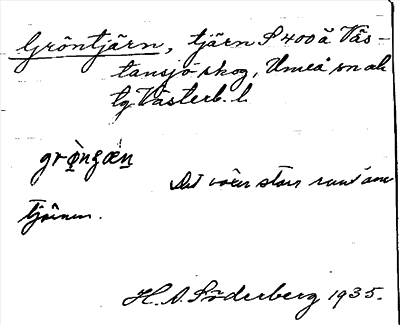 Gröntjärn, tjärn S 400 å Väs-
tansjö skog, Umeå sn ak
lg Västerb. l.
grö̀nʒæ̀n
Det växer starr runt om
tjärnen.
H. A. Söderberg 1935.